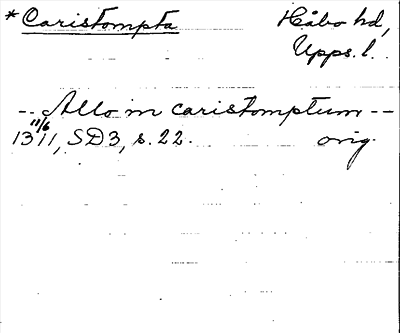 *Caristompta Håbo hd,
Upps. l.
-- Allo in caristomptum --
13 11/6 11, SD3, s. 22. orig.